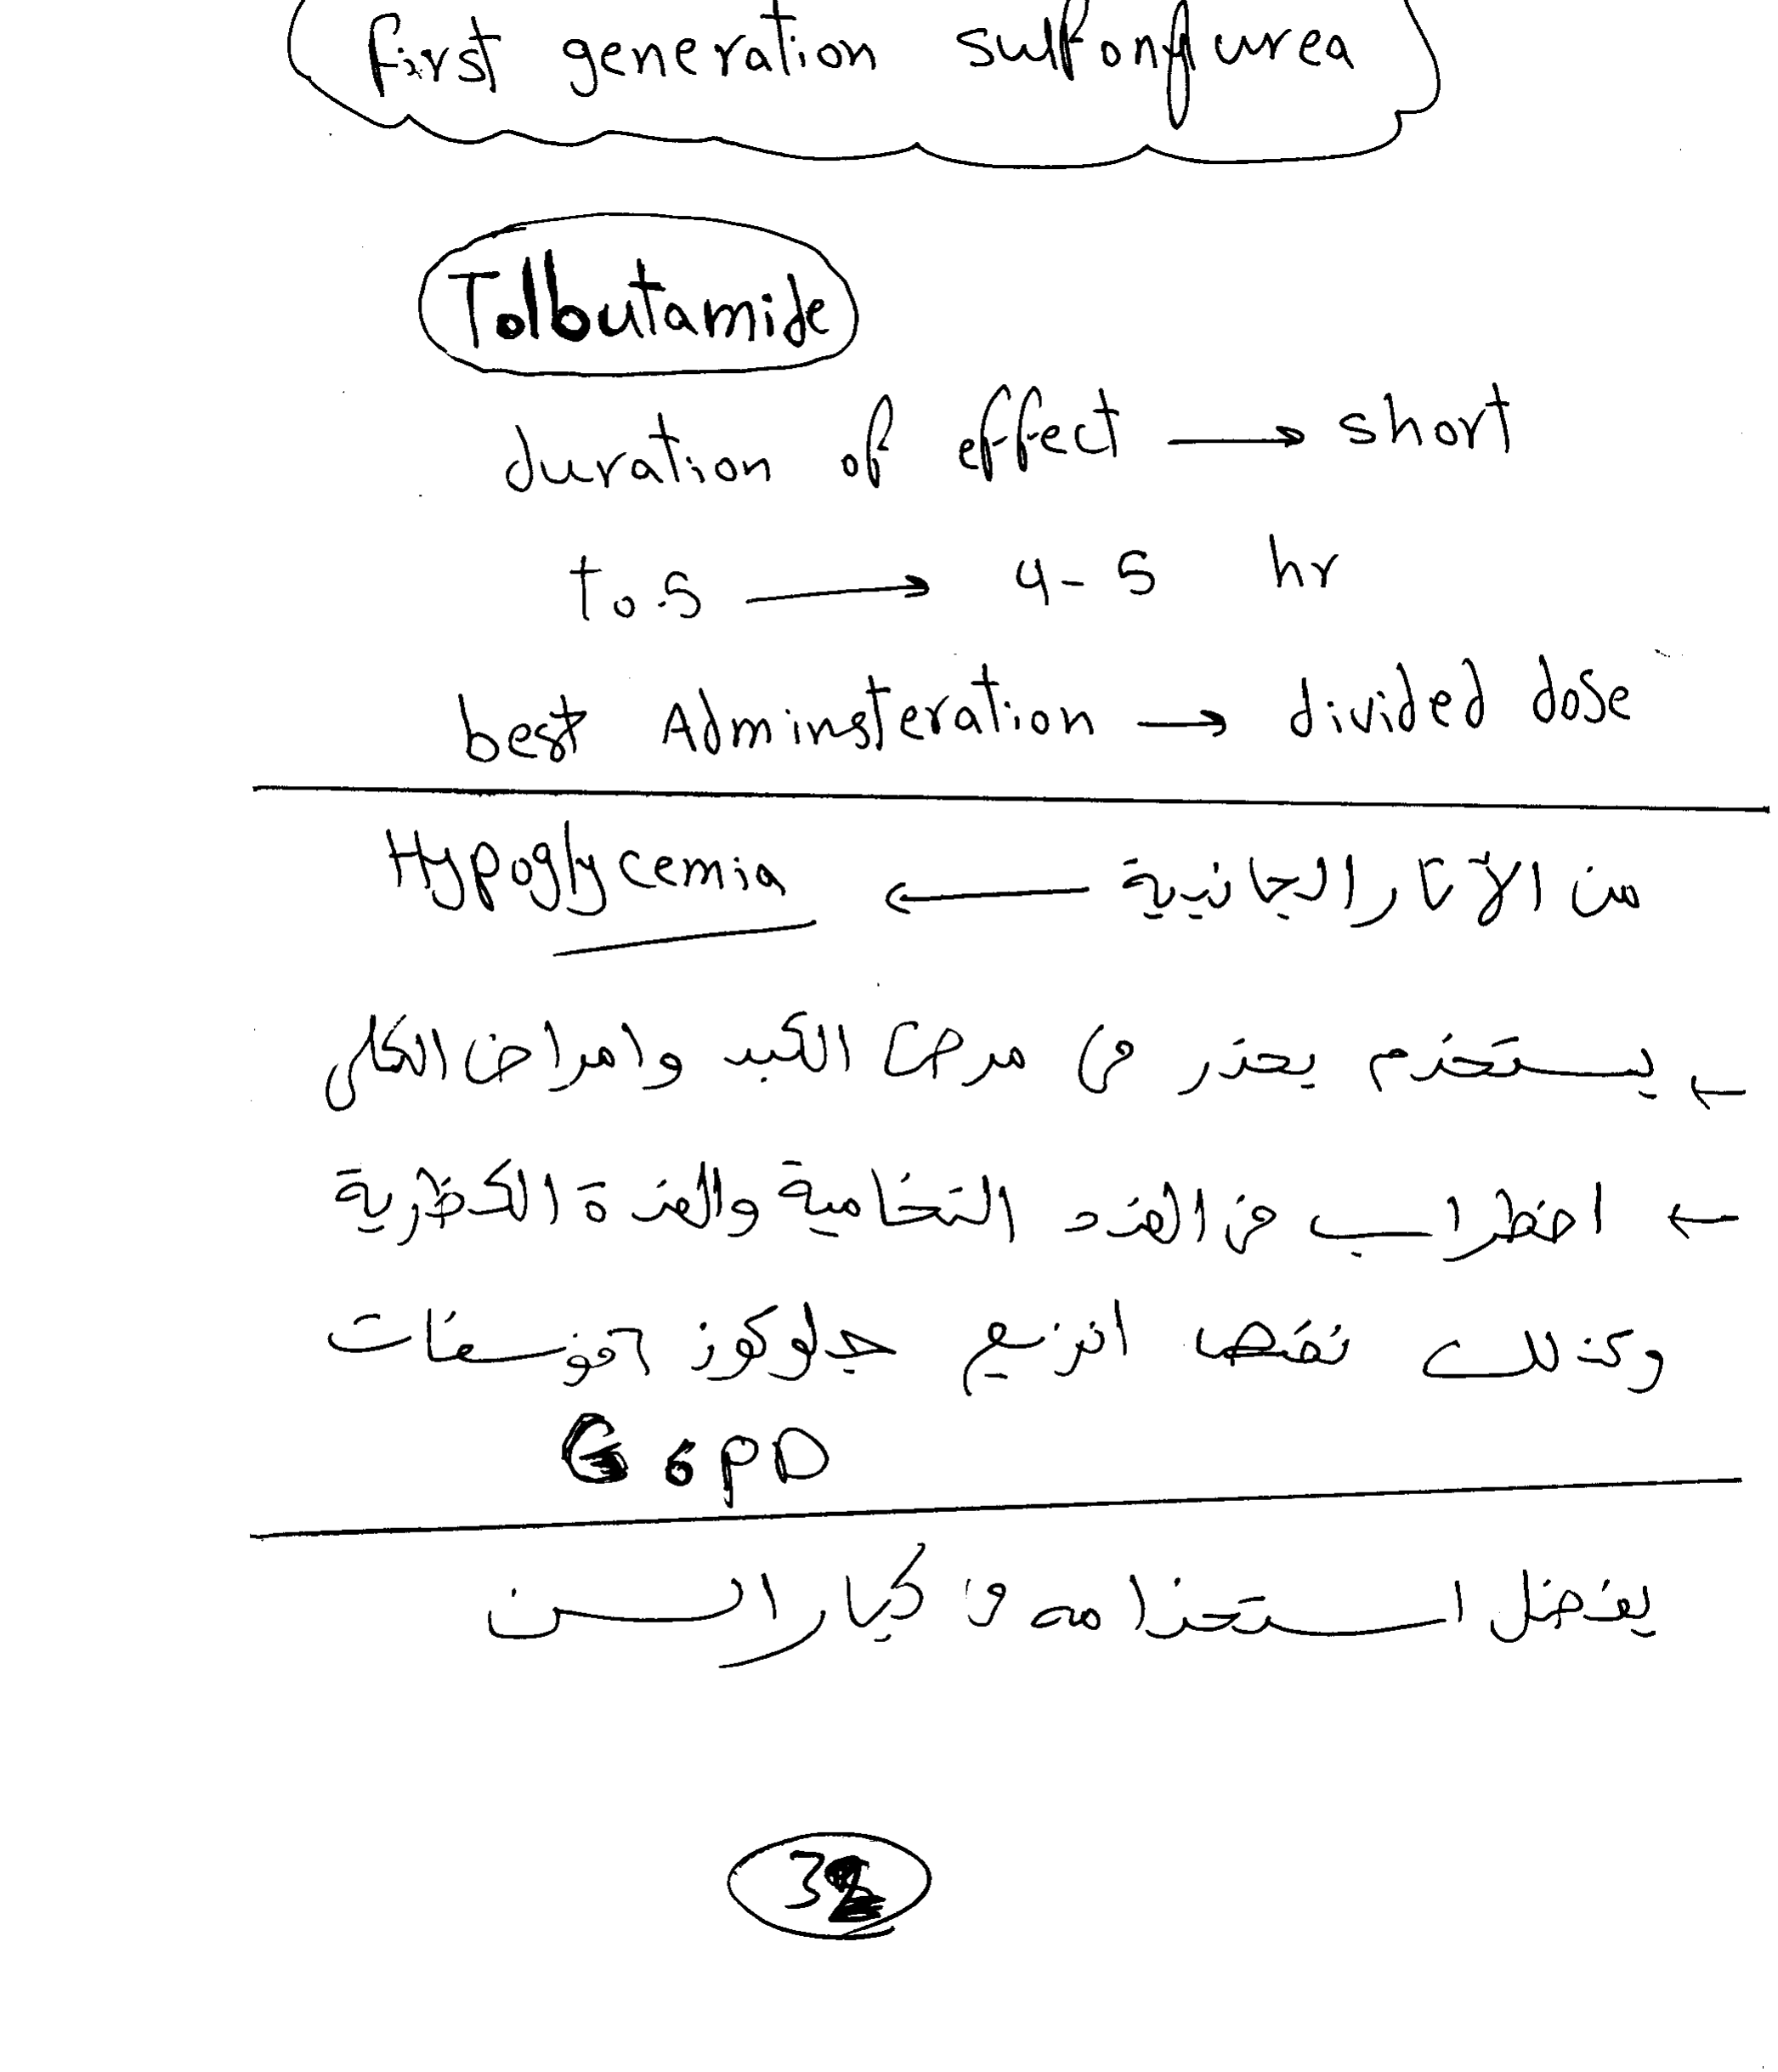 first generation sulfonylurea
Tolbutamide
duration of effect → short
t0.5 → 4-5 hr
best Adminsteration → divided dose
من الآثار الجانبية ← Hypoglycemia
← يستخدم بحذر في مرضى الكبد وامراض الكلى
← اضطراب في الغدد النخامية والغدة الكظرية
وكذلك نقص انزيم جلوكوز 6 فوسفات
G6PD
يفضل استخدامه في كبار السن